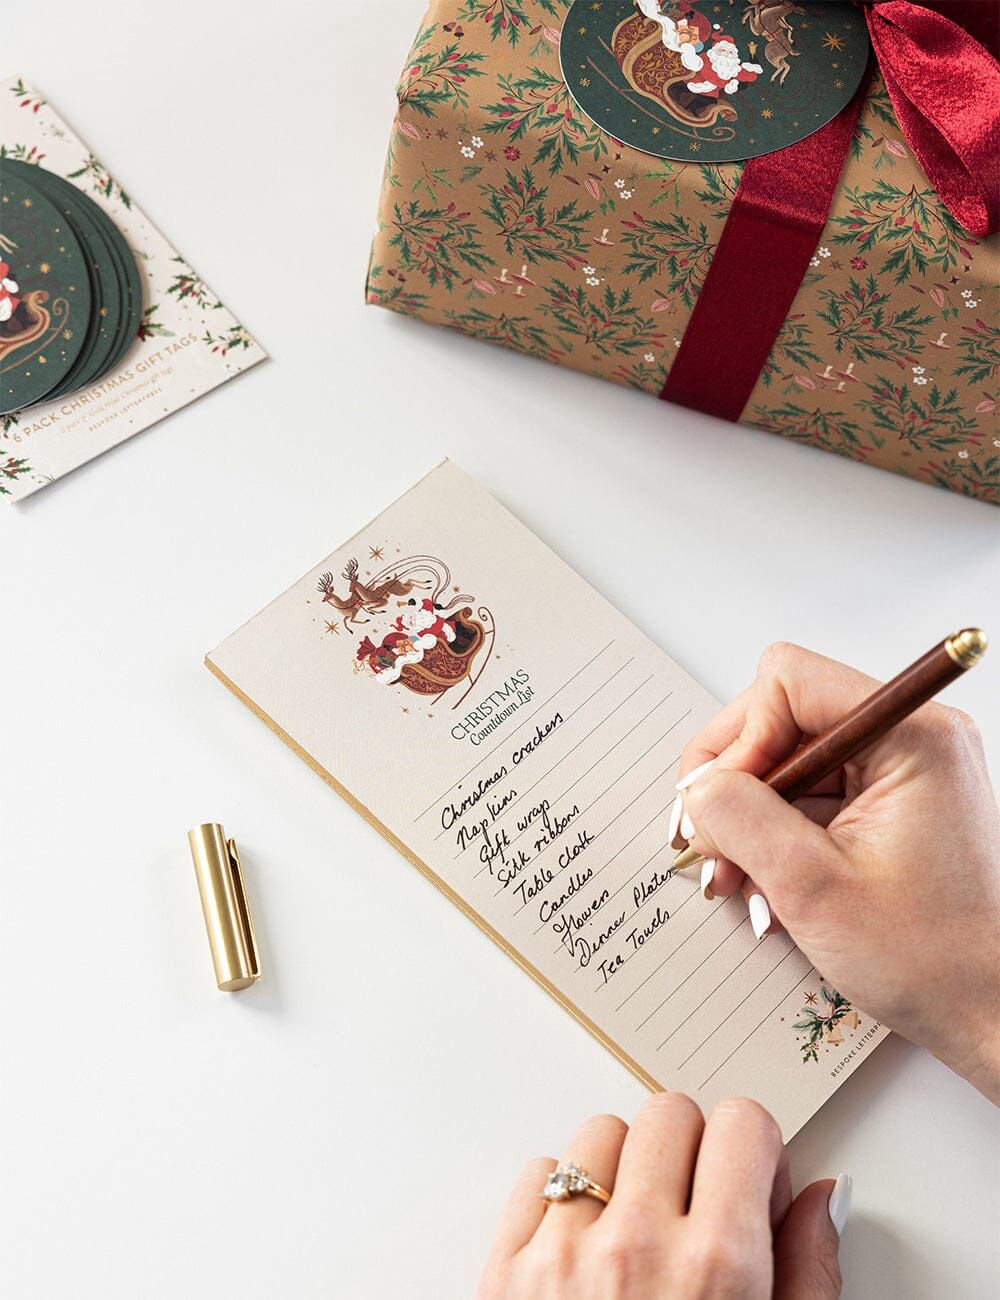 6 PACK CHRISTMAS GIFT TAGS
BESPOKE LETTERPRESS
CHRISTMAS
Countdown List
Christmas crackers
Napkins
Gift wrap
Silk ribbons
Table cloth
Candles
Flowers
Dinner Plates
Tea Towels
BESPOKE LETTERPR